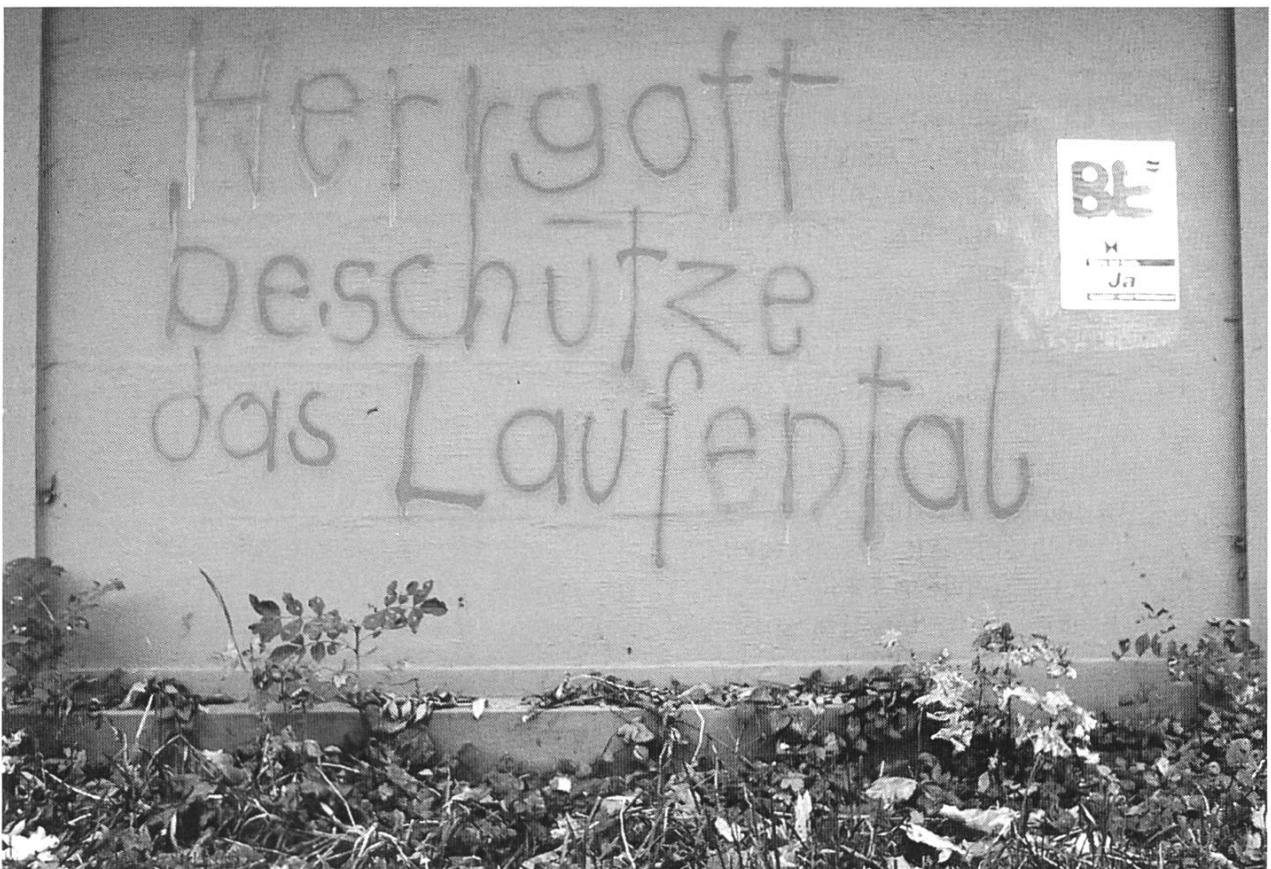 Herrgott
beschütze
das Laufental
Ja